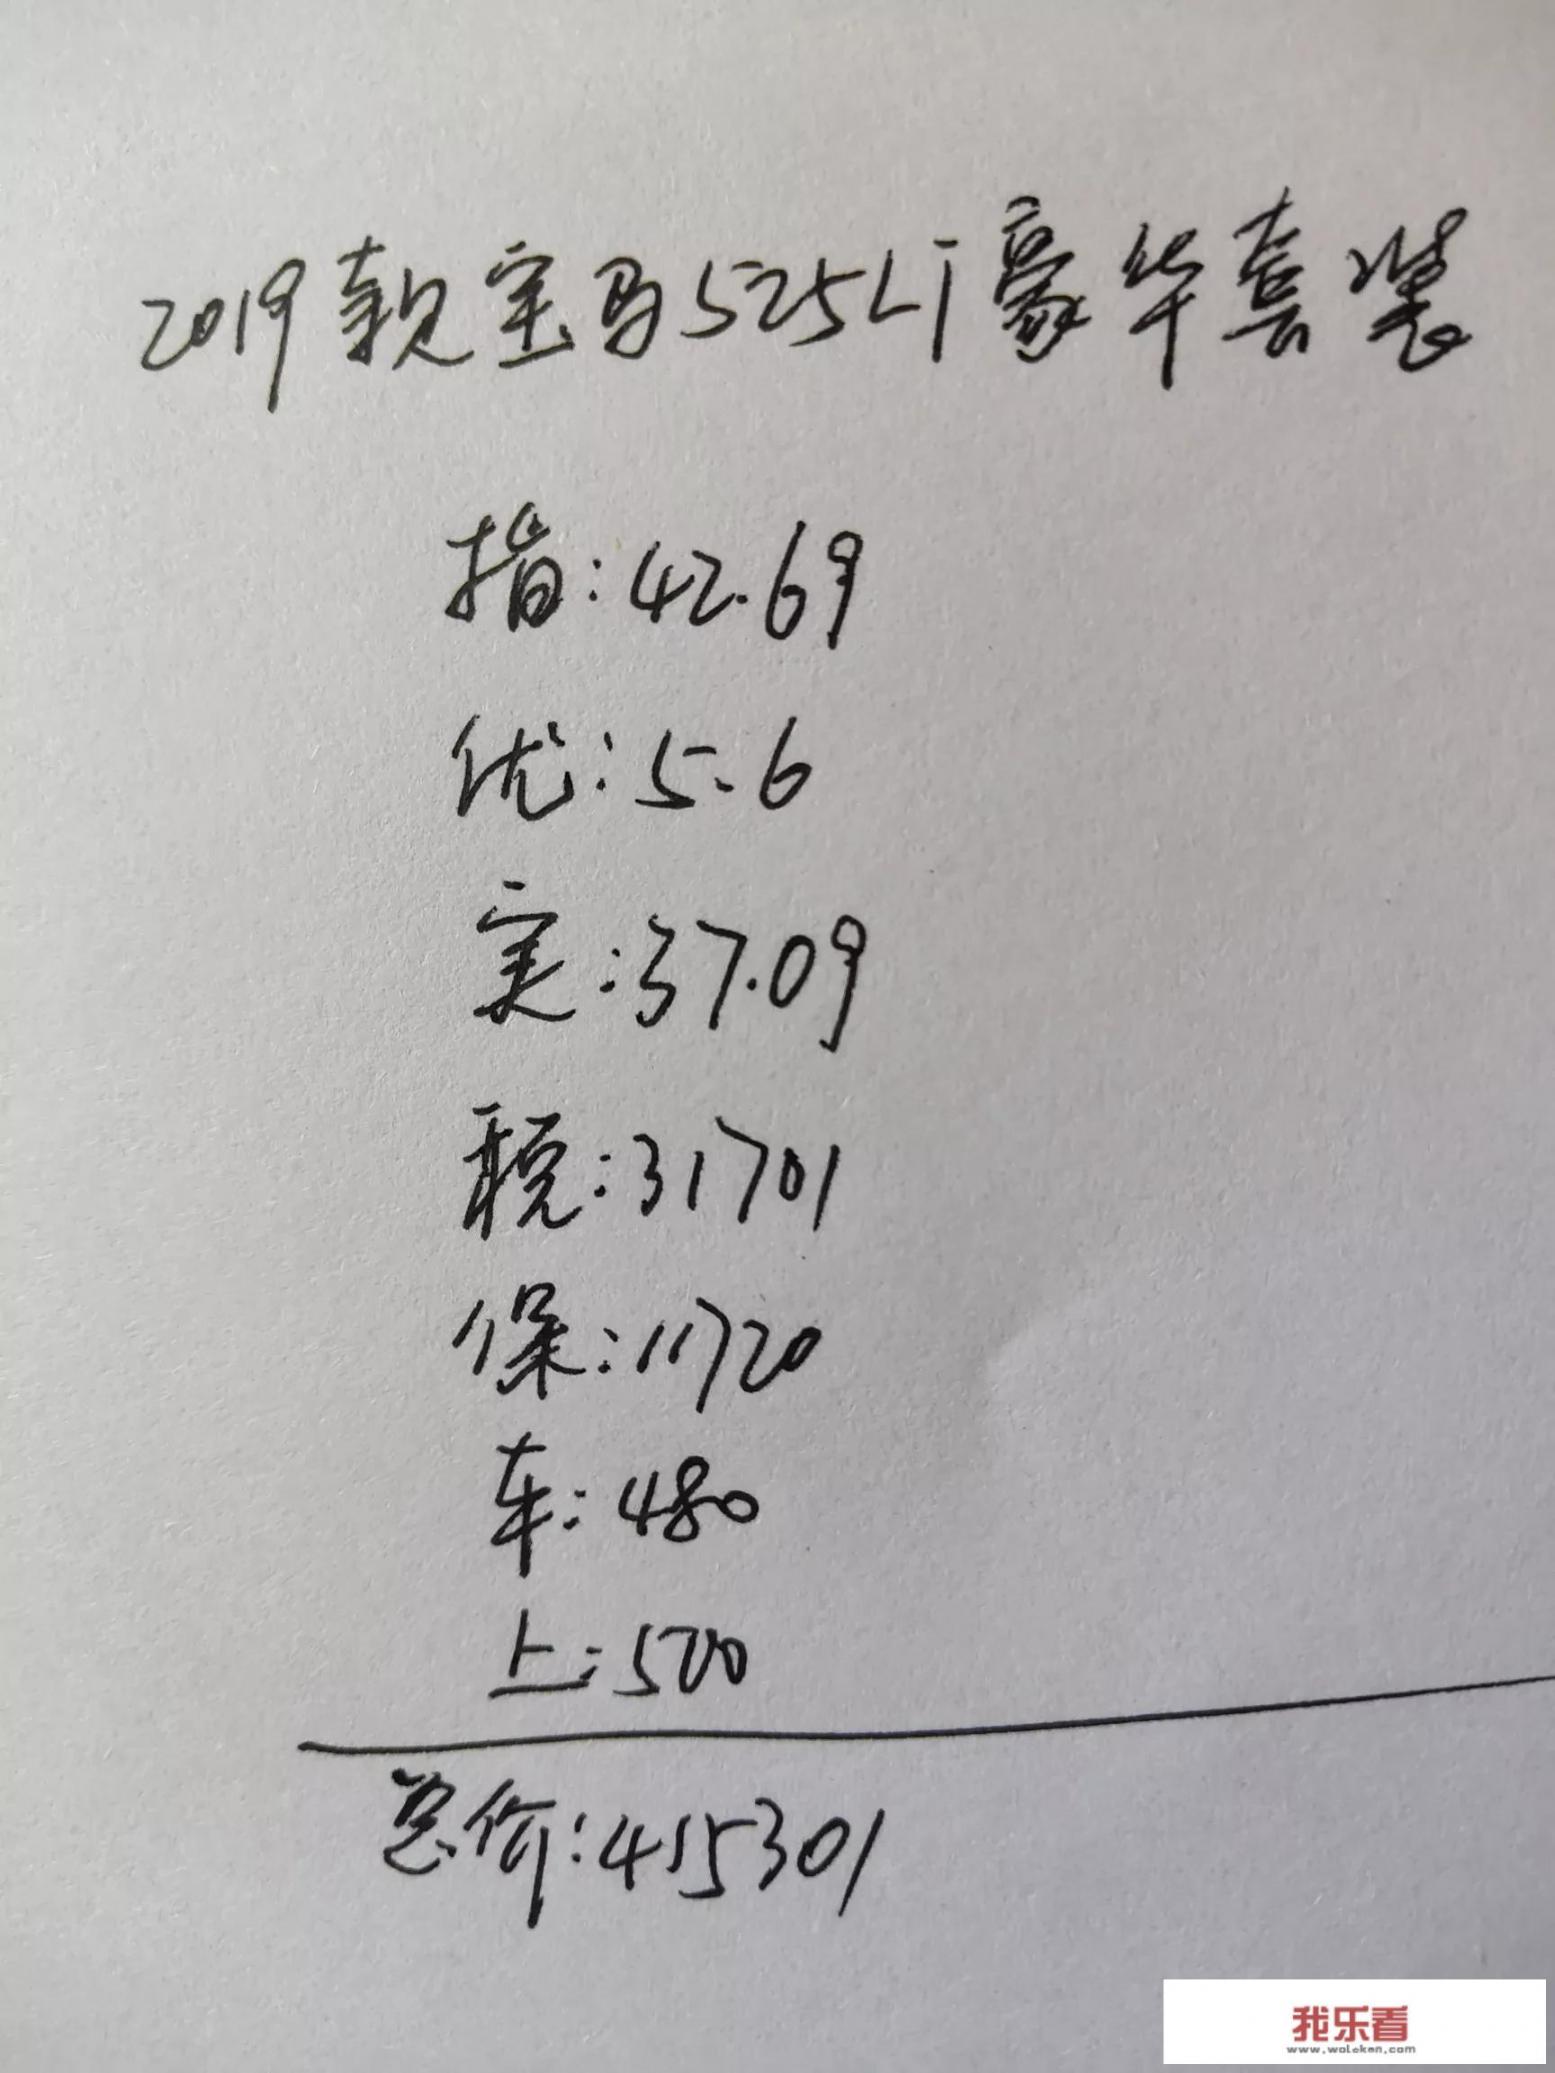 2019款宝马525Li豪华套装
指:42.69
优:5.6
实:37.09
税:31701
保:11720
车:480
上:500
总价:415301
我乐看
www.woleken.com